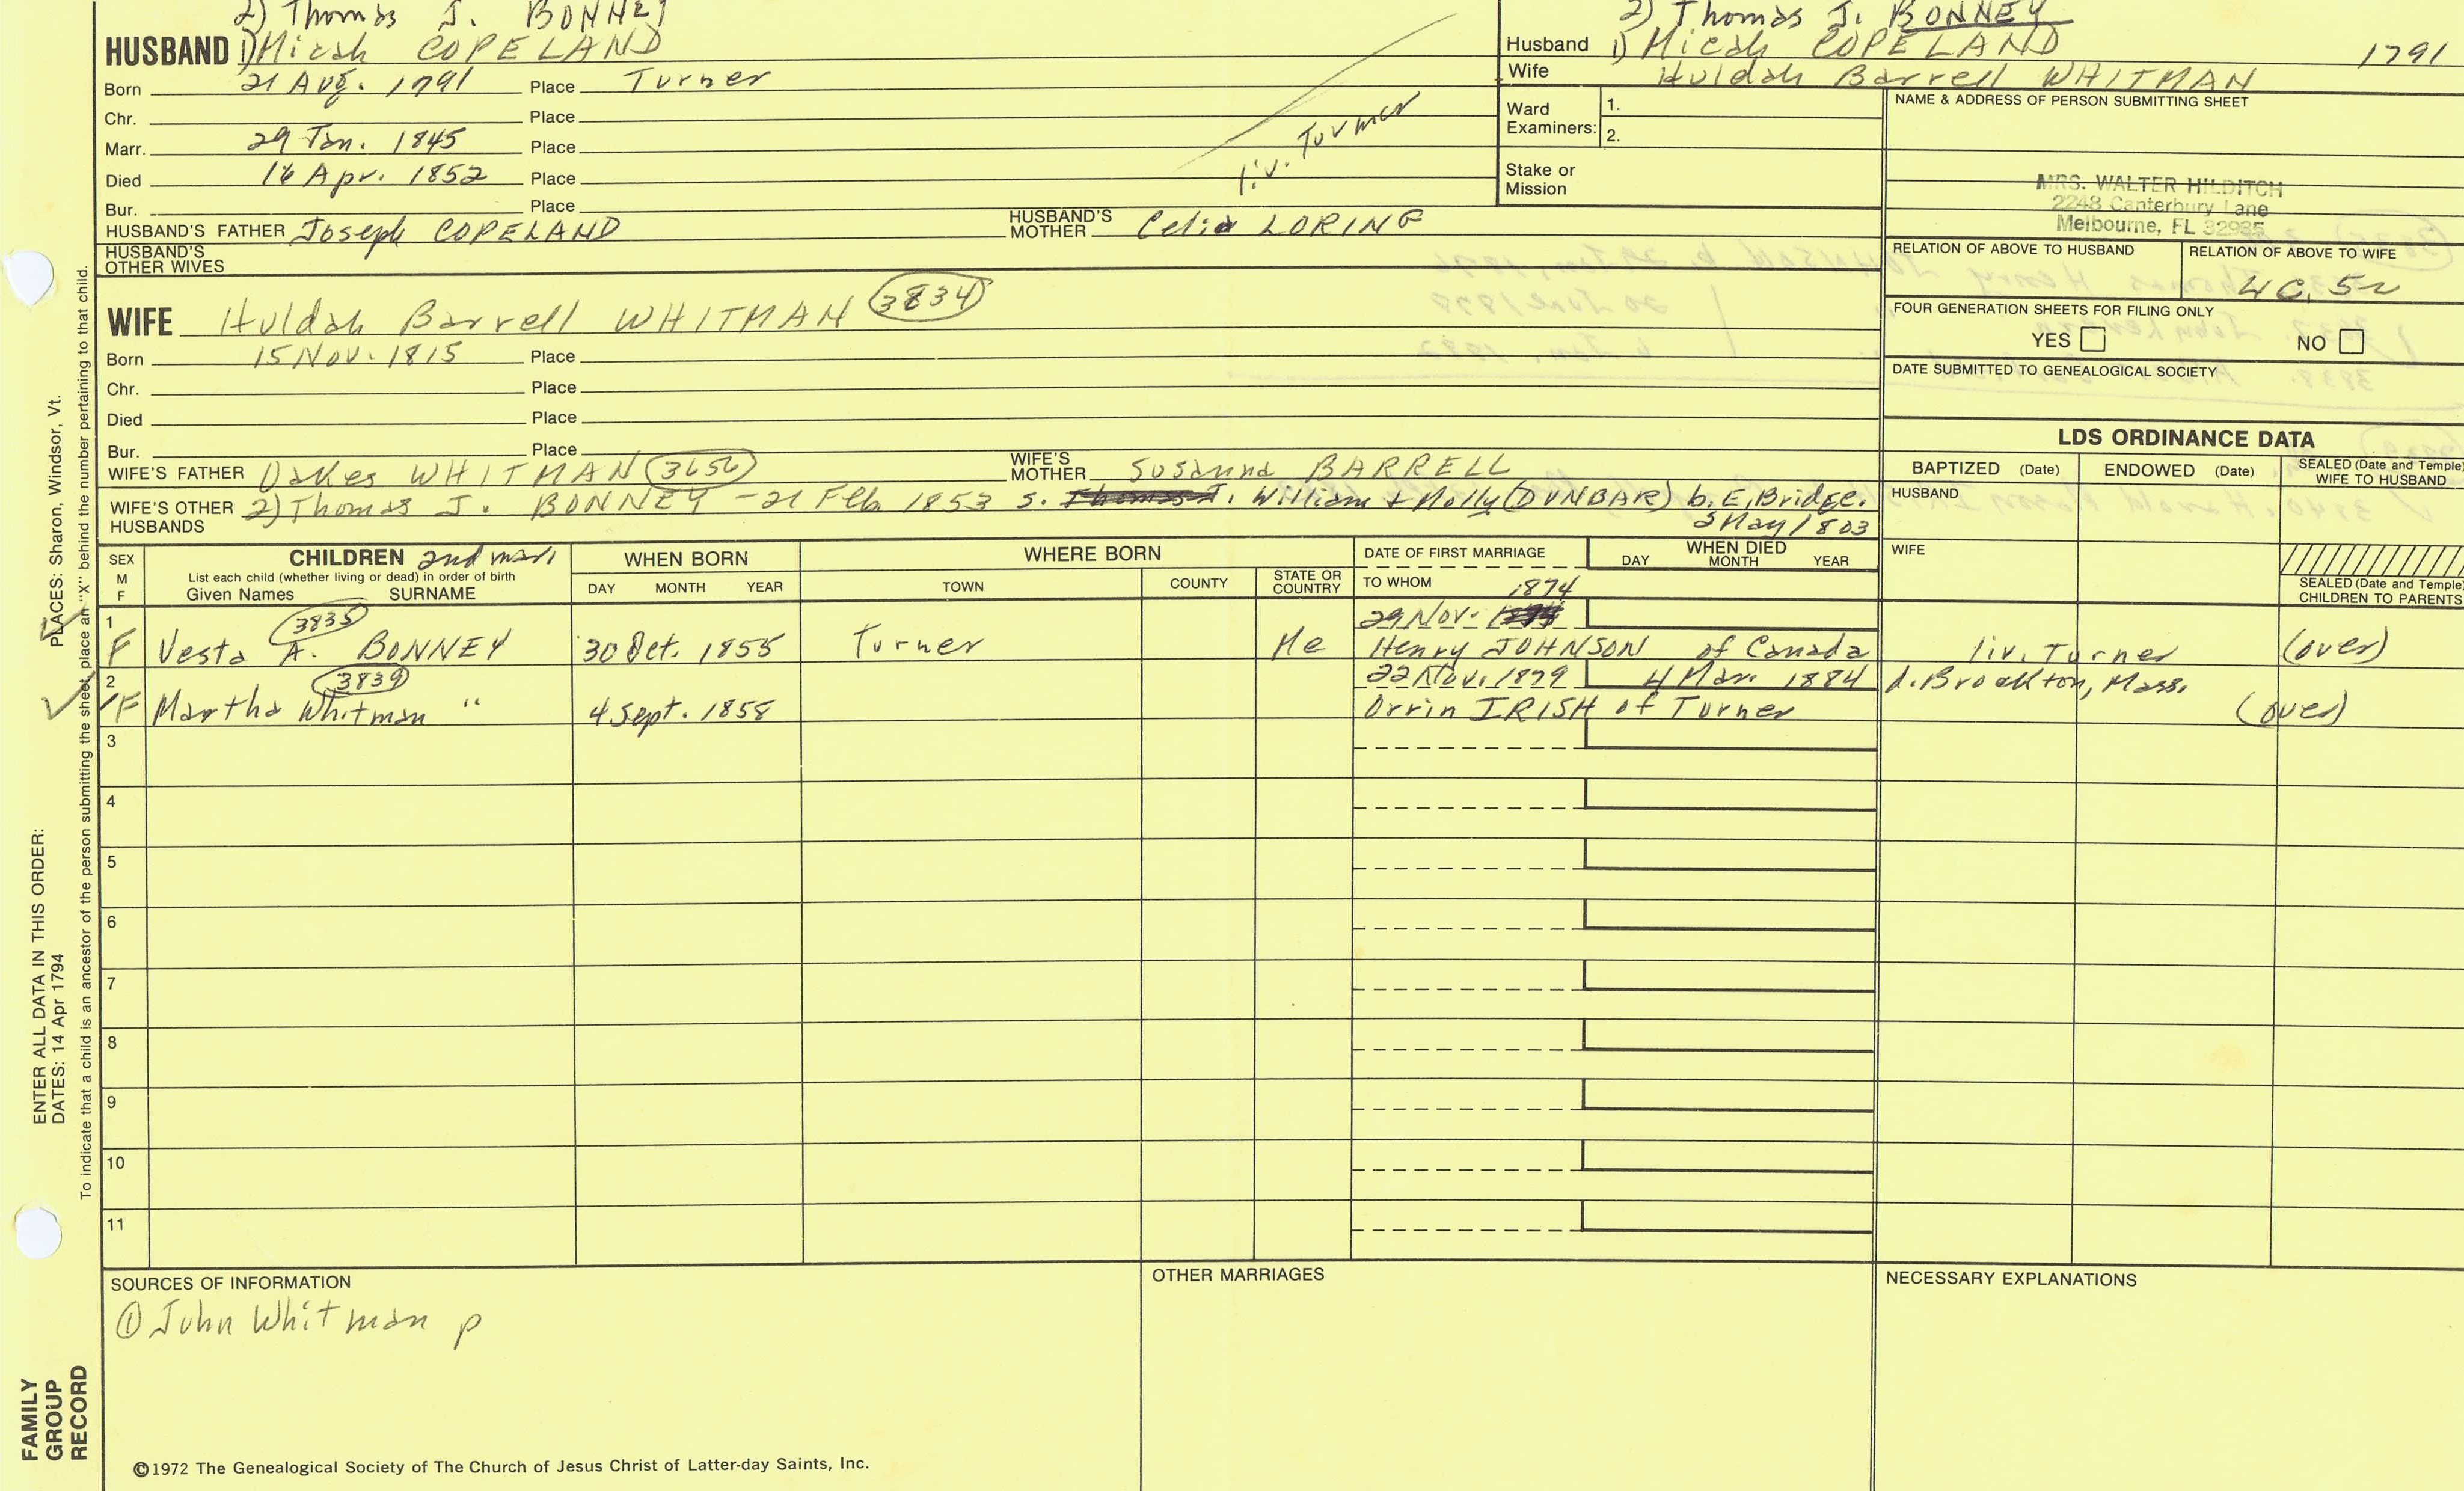 2) Thomas J. BONNEY
HUSBAND 1) Micah COPELAND
Born 21 Aug. 1791 Place Turner
Chr. Place
Marr. 29 Jan. 1845 Place
Died 16 Apr. 1852 Place
Bur. Place
liv. Turner
HUSBAND'S FATHER Joseph COPELAND HUSBAND'S MOTHER Celia LORING
HUSBAND'S OTHER WIVES
2) Thomas J. BONNEY
Husband 1) Micah COPELAND 1791
Wife Huldah Barrell WHITMAN
Ward Examiners: 1.
2.
Stake or Mission
NAME & ADDRESS OF PERSON SUBMITTING SHEET
MRS. WALTER HILDITCH
2248 Canterbury Lane
Melbourne, FL 32935
RELATION OF ABOVE TO HUSBAND RELATION OF ABOVE TO WIFE
4C, 5r
FOUR GENERATION SHEETS FOR FILING ONLY
YES NO
DATE SUBMITTED TO GENEALOGICAL SOCIETY
WIFE Huldah Barrell WHITMAN 3834
Born 15 Nov. 1815 Place
Chr. Place
Died Place
Bur. Place
WIFE'S FATHER Oakes WHITMAN 3656 WIFE'S MOTHER Susanna BARRELL
WIFE'S OTHER HUSBANDS 2) Thomas J. BONNEY - 21 Feb. 1853 s. Thomas J. William + Molly (DUNBAR) b. E. Bridge.
3 May 1803
LDS ORDINANCE DATA
BAPTIZED (Date) ENDOWED (Date) SEALED (Date and Temple) WIFE TO HUSBAND
HUSBAND
WIFE
SEALED (Date and Temple) CHILDREN TO PARENTS
SEX M F CHILDREN 2nd marr. WHEN BORN WHERE BORN DATE OF FIRST MARRIAGE WHEN DIED
List each child (whether living or dead) in order of birth
Given Names SURNAME DAY MONTH YEAR TOWN COUNTY STATE OR COUNTRY TO WHOM DAY MONTH YEAR
1 3835 29 Nov. 1874
F Vesta A. BONNEY 30 Oct. 1855 Turner Me Henry JOHNSON of Canada liv. Turner (over)
2 3839 22 Nov. 1879 4 Mar. 1884 d. Brockton, Mass.
F Martha Whitman " 4 Sept. 1858 Orrin IRISH of Turner (over)
3
4
5
6
7
8
9
10
11
SOURCES OF INFORMATION
① John Whitman p
OTHER MARRIAGES
NECESSARY EXPLANATIONS
©1972 The Genealogical Society of The Church of Jesus Christ of Latter-day Saints, Inc.
ENTER ALL DATA IN THIS ORDER:
DATES: 14 Apr 1794 PLACES: Sharon, Windsor, Vt.
To indicate that a child is an ancestor of the person submitting the sheet, place an "X" behind the number pertaining to that child.
FAMILY
GROUP
RECORD